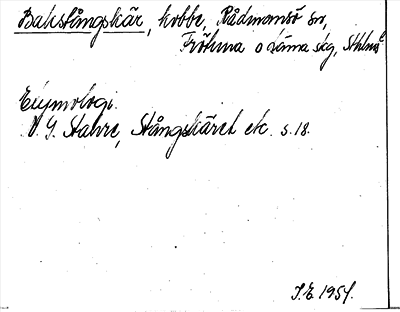 Bakstångskär, kobbe, Rådmansö sn,
Fröhma o Länna skg, Sthlms l.
Etymologi.
V. G. Stahre, Stångskäret etc. s. 18.
S.E. 1954.